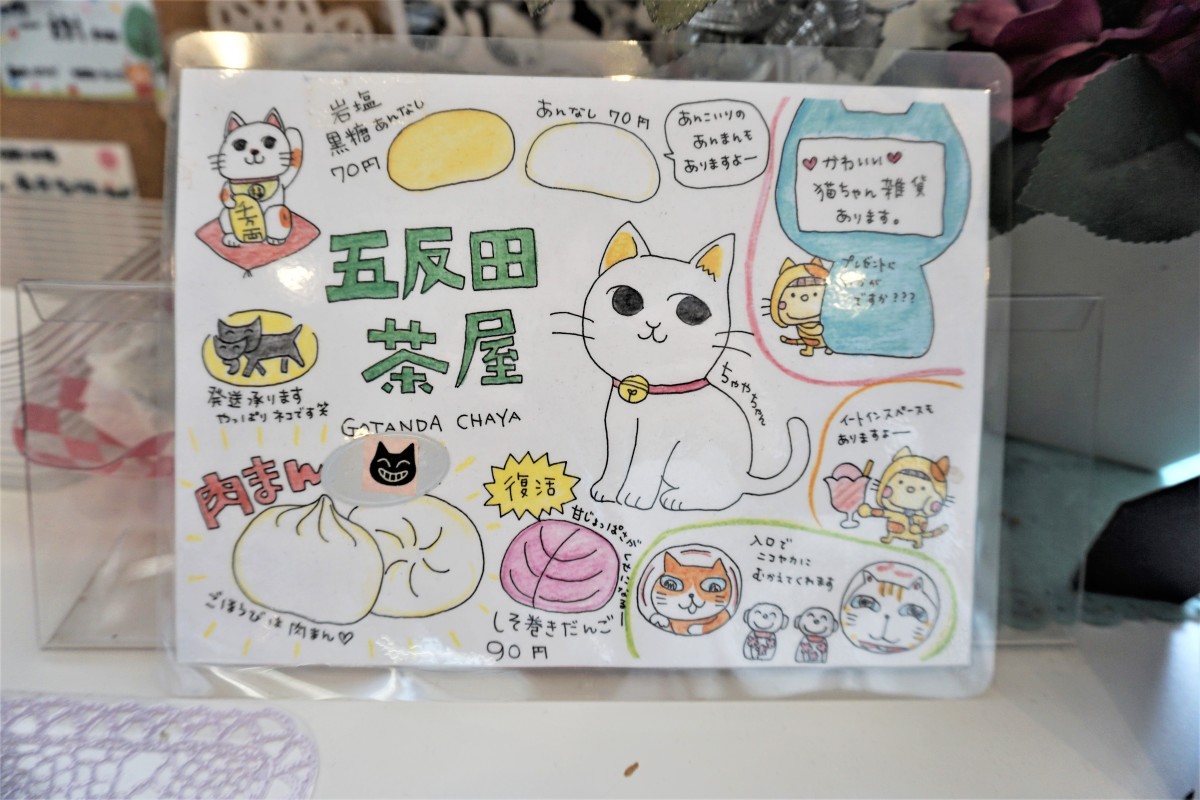 岩塩
黒糖あんなし
70円
あんなし 70円
あんこいりの
あんまんも
ありますよー
♥かわいい♥
猫ちゃん雑貨
あります。
プレゼントに
ですか???
千万両
五反田
茶屋
GOTANDA CHAYA
ちゃやちゃん
発送承ります
やっぱりネコです笑
イートインスペースも
ありますよー
肉まん
ごほうびは肉まん♡
復活
甘じょっぱさが
しそ巻きだんごー
90円
入口で
ニコヤカに
むかえてくれます